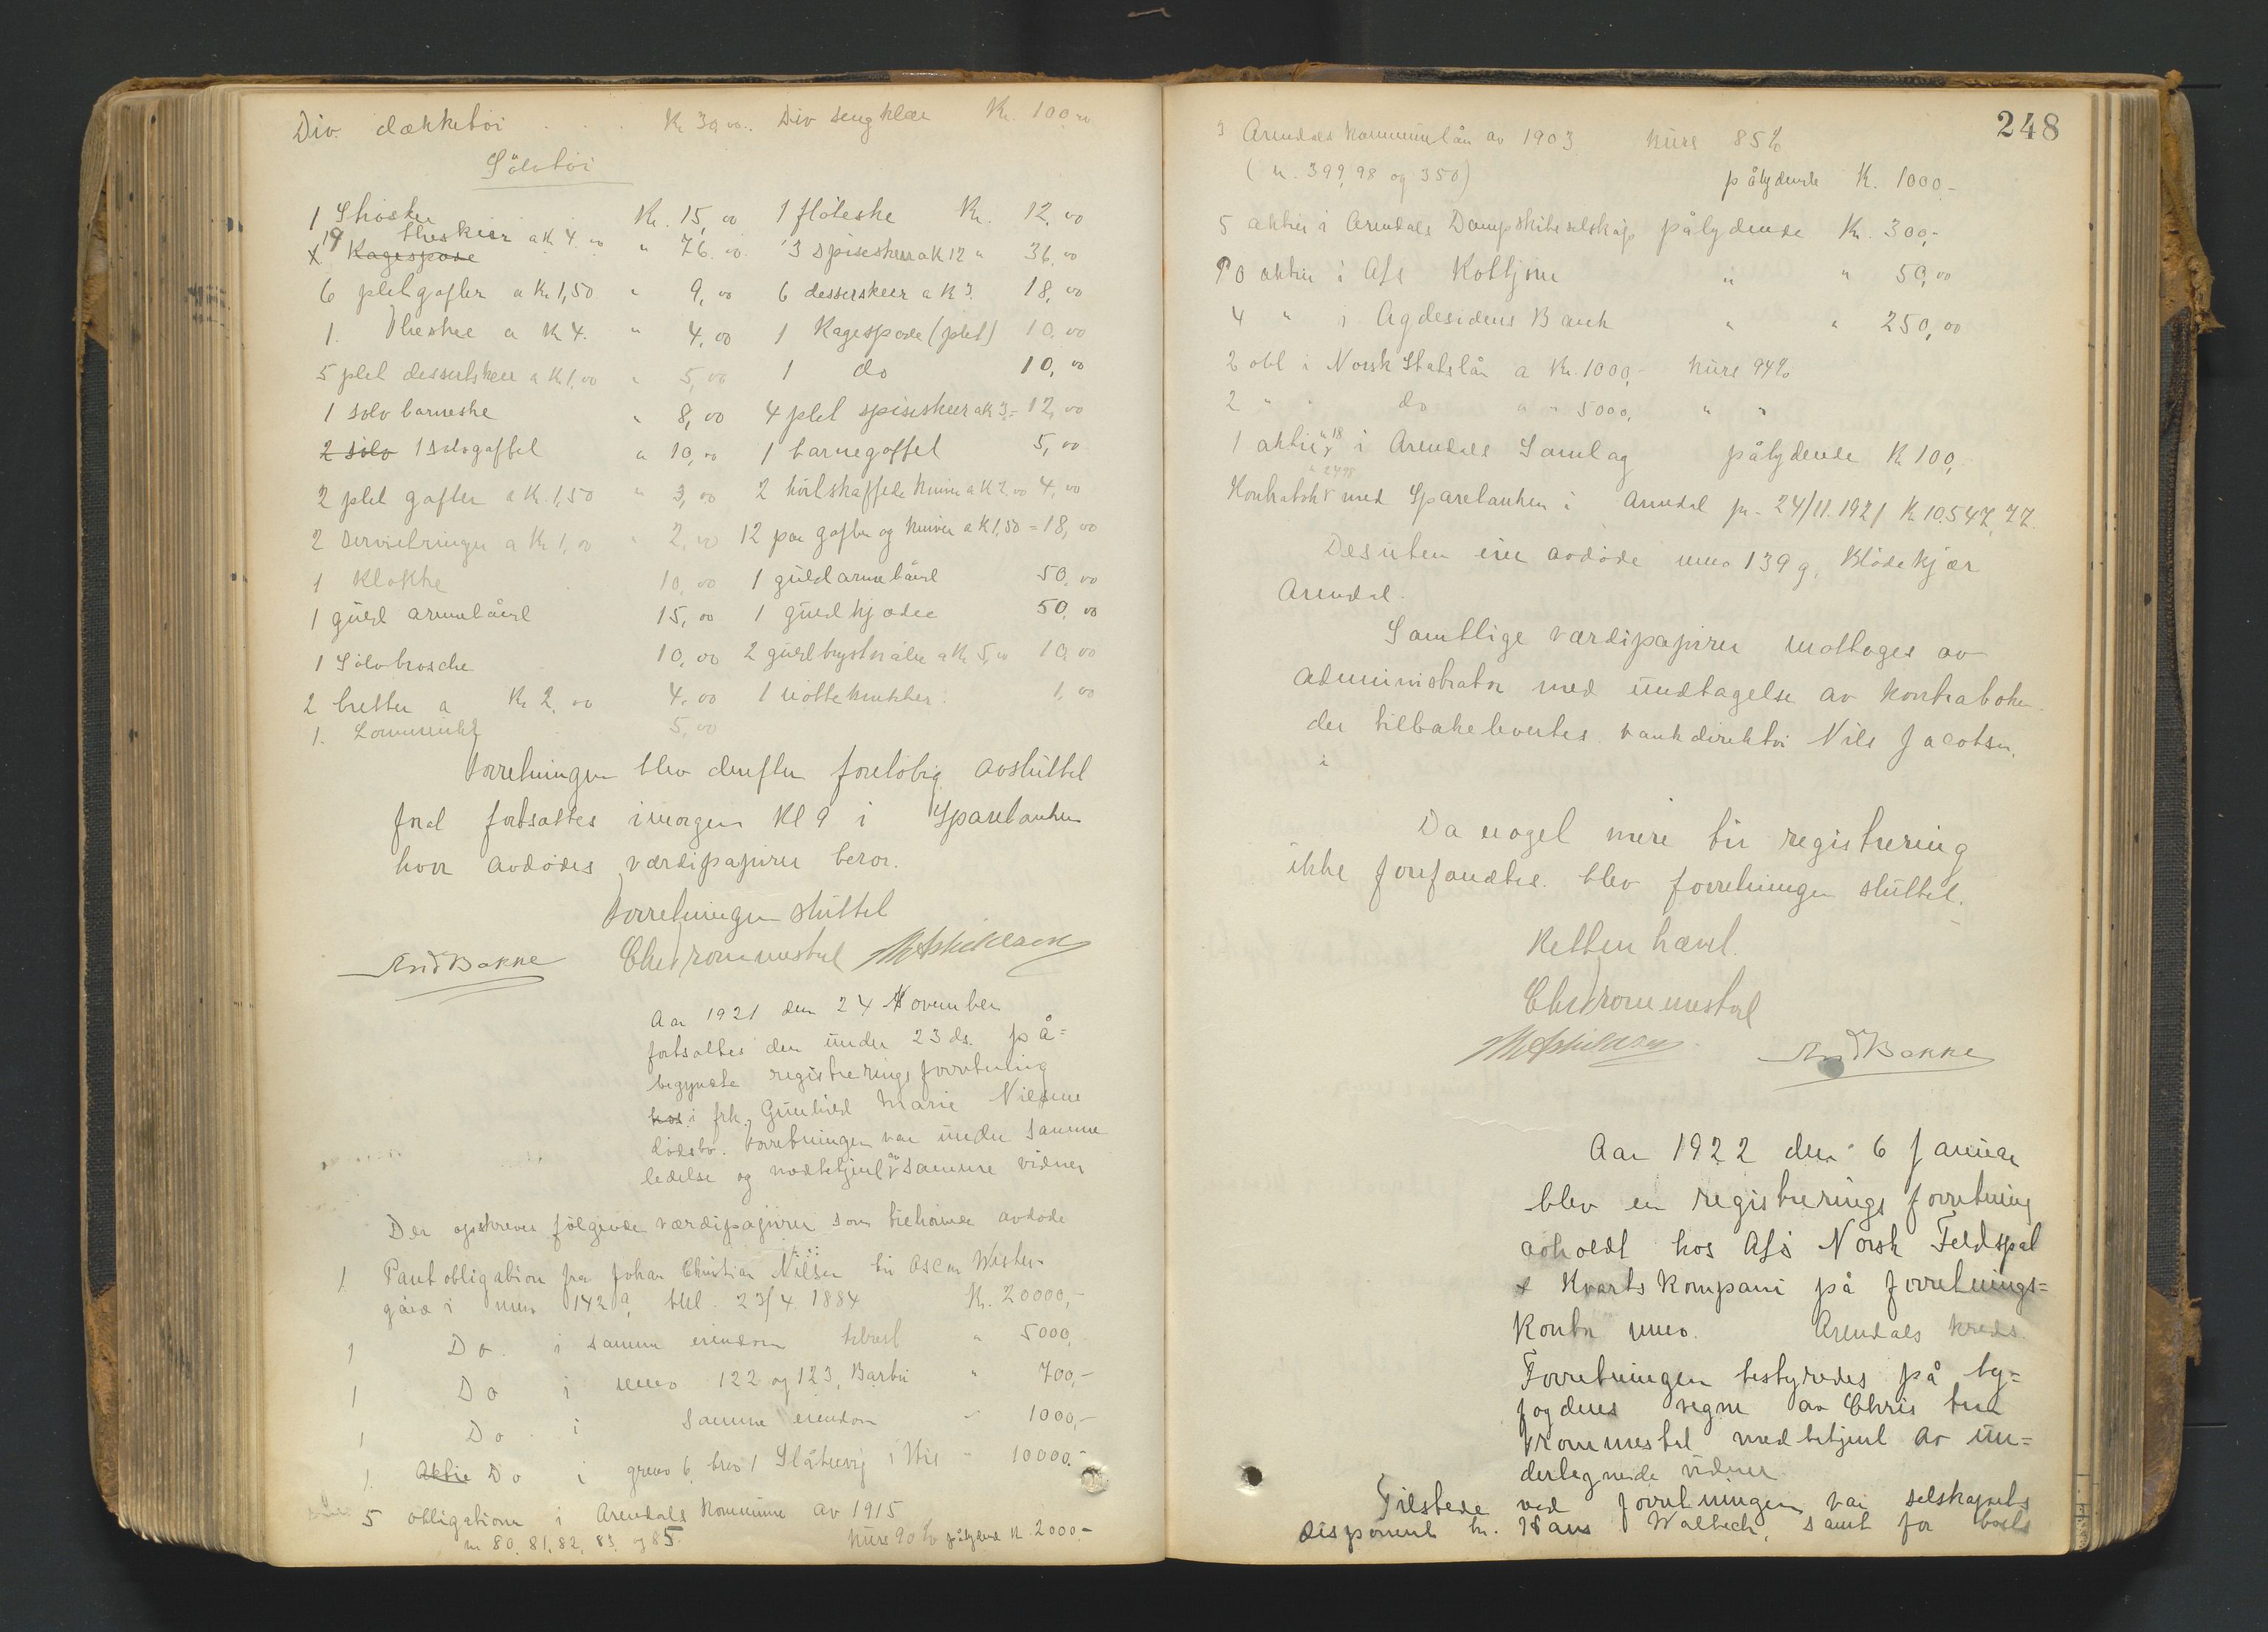 Div. dækketöi . . . Kr 30,00. Div sengklær Kr. 100,00
Sölvtöi
1 Shöske Kr. 15,00 1 flöteske Kr. 12,00
19 theskeer a K 4.00 " 76.00 3 spiseskeer a K 12 " 36,00
x Kagespade
6 plet gafler a Kr 1,50 " 9,00 6 desserskeer a K 3. 18,00
1. Theske a K 4. " 4,00 1 Kagespade (plet) 10,00
5 plet dessertskeer a K 1,00 " 5,00 1 do 10,00
1 sölv barneske " 8,00 4 plet spiseskeer a K 3,- 12,00
2 sölv 1 sölvgaffel a 10,00 1 barnegaffel 5,00
2 plet gafler a K. 1,50 " 3,00 2 hvitskaffede kniver a K 2,00 4,00
2 servietringer a Kr 1,00 " 2,00 12 par gafler og kniver a K 1,50 = 18,00
1 Klokke 10,00 1 guldarmbånd 50,00
1 guld armbånd 15,00 1 guldkjæde 50,00
1 Sölvbrosche 10,00 2 guldbrystnåler a Kr 5,00 10,00
2 bretter a Kr 2,00 4,00 1 nötteknekker 1,00
1. Lommeuhr 5,00
Forretningen blev derefter forelöbig avsluttet
for at fortsættes imorgen Kl 9 i Sparebanken
hvor avdödes værdipapirer beror.
Forretningen sluttet
And Bakke Chr Frommestad
Aar 1921 den 24 November
fortsattes den under 23 ds. på=
begyndte registreringsforretning
hos i frk. Gunhild Marie Nielsens
dödsbo. Forretningen var under samme
ledelse og medbetjent av samme vidner
Der opskreves fölgende værdipapirer som tilhörende avdöde
1 Pantobligation fra Johan Christian Nilsen til Oscar Wester-
gård i mno 142 a, thl. 23/4. 1884 K. 20000,-
1 Do. i samme eiendom " 5000,
1 Do i mno 122 og 123, Barbu " 700,-
1 Do. i samme eiendom - 1000,-
1. Aktie Do i grno 6, brno 1 Slåttevig i His - 10000.-
5 obligationer i Arendals Kommune av 1915
nr 80, 81, 82, 83, og 85. Kurs 90 % pålydende K. 2000-
248
3 Arendals Kommunelån av 1903 Kurs 85 %
(n. 399, 98 og 350) pålydende K. 1000-
5 aktier i Arendals Dampskibsselskap pålydende Kr. 300,-
10 aktier i A/s " " 50,00
4 " i Agdesidens Bank " " 250,00
2 obl i Norsk Statslån a Kr. 1000,- Kurs 94%
2 " " do a " 5000, " "
1 aktie n 18 i Arendals Samlag pålydende K 100,
Kontrabok n 2498 med Sparebanken i Arendal pr. 24/11. 1921 K 10.547,77.
Desuten eier avdöde mno 139 g, Blödekjær
Arendal.
Samtlige værdipapirer mottoges av
administrator med undtagelse av kontraboken
der tilbakelevertes bankdirektör Nils Jacobsen.
i
Da noget mere til registrering
ikke forefandtes blev forretningen sluttet.
Retten hævet.
Chr Frommestad
And Bakke
Aar 1922 den 6 Januar
blev en registrerings forretning
avholdt hos A/s Norsk Feldspat
& Kvarts Kompani på forretnings=
Kontor mno. Arendals Kreds.
Forretningen bestyredes på by=
fogdens vegne av Chris tian
Frommestad medbetjent av un=
dertegnede vidner.
Tilstede ved forretningen var selskapets
disponent hr. Hans Walbeck, samt for boets